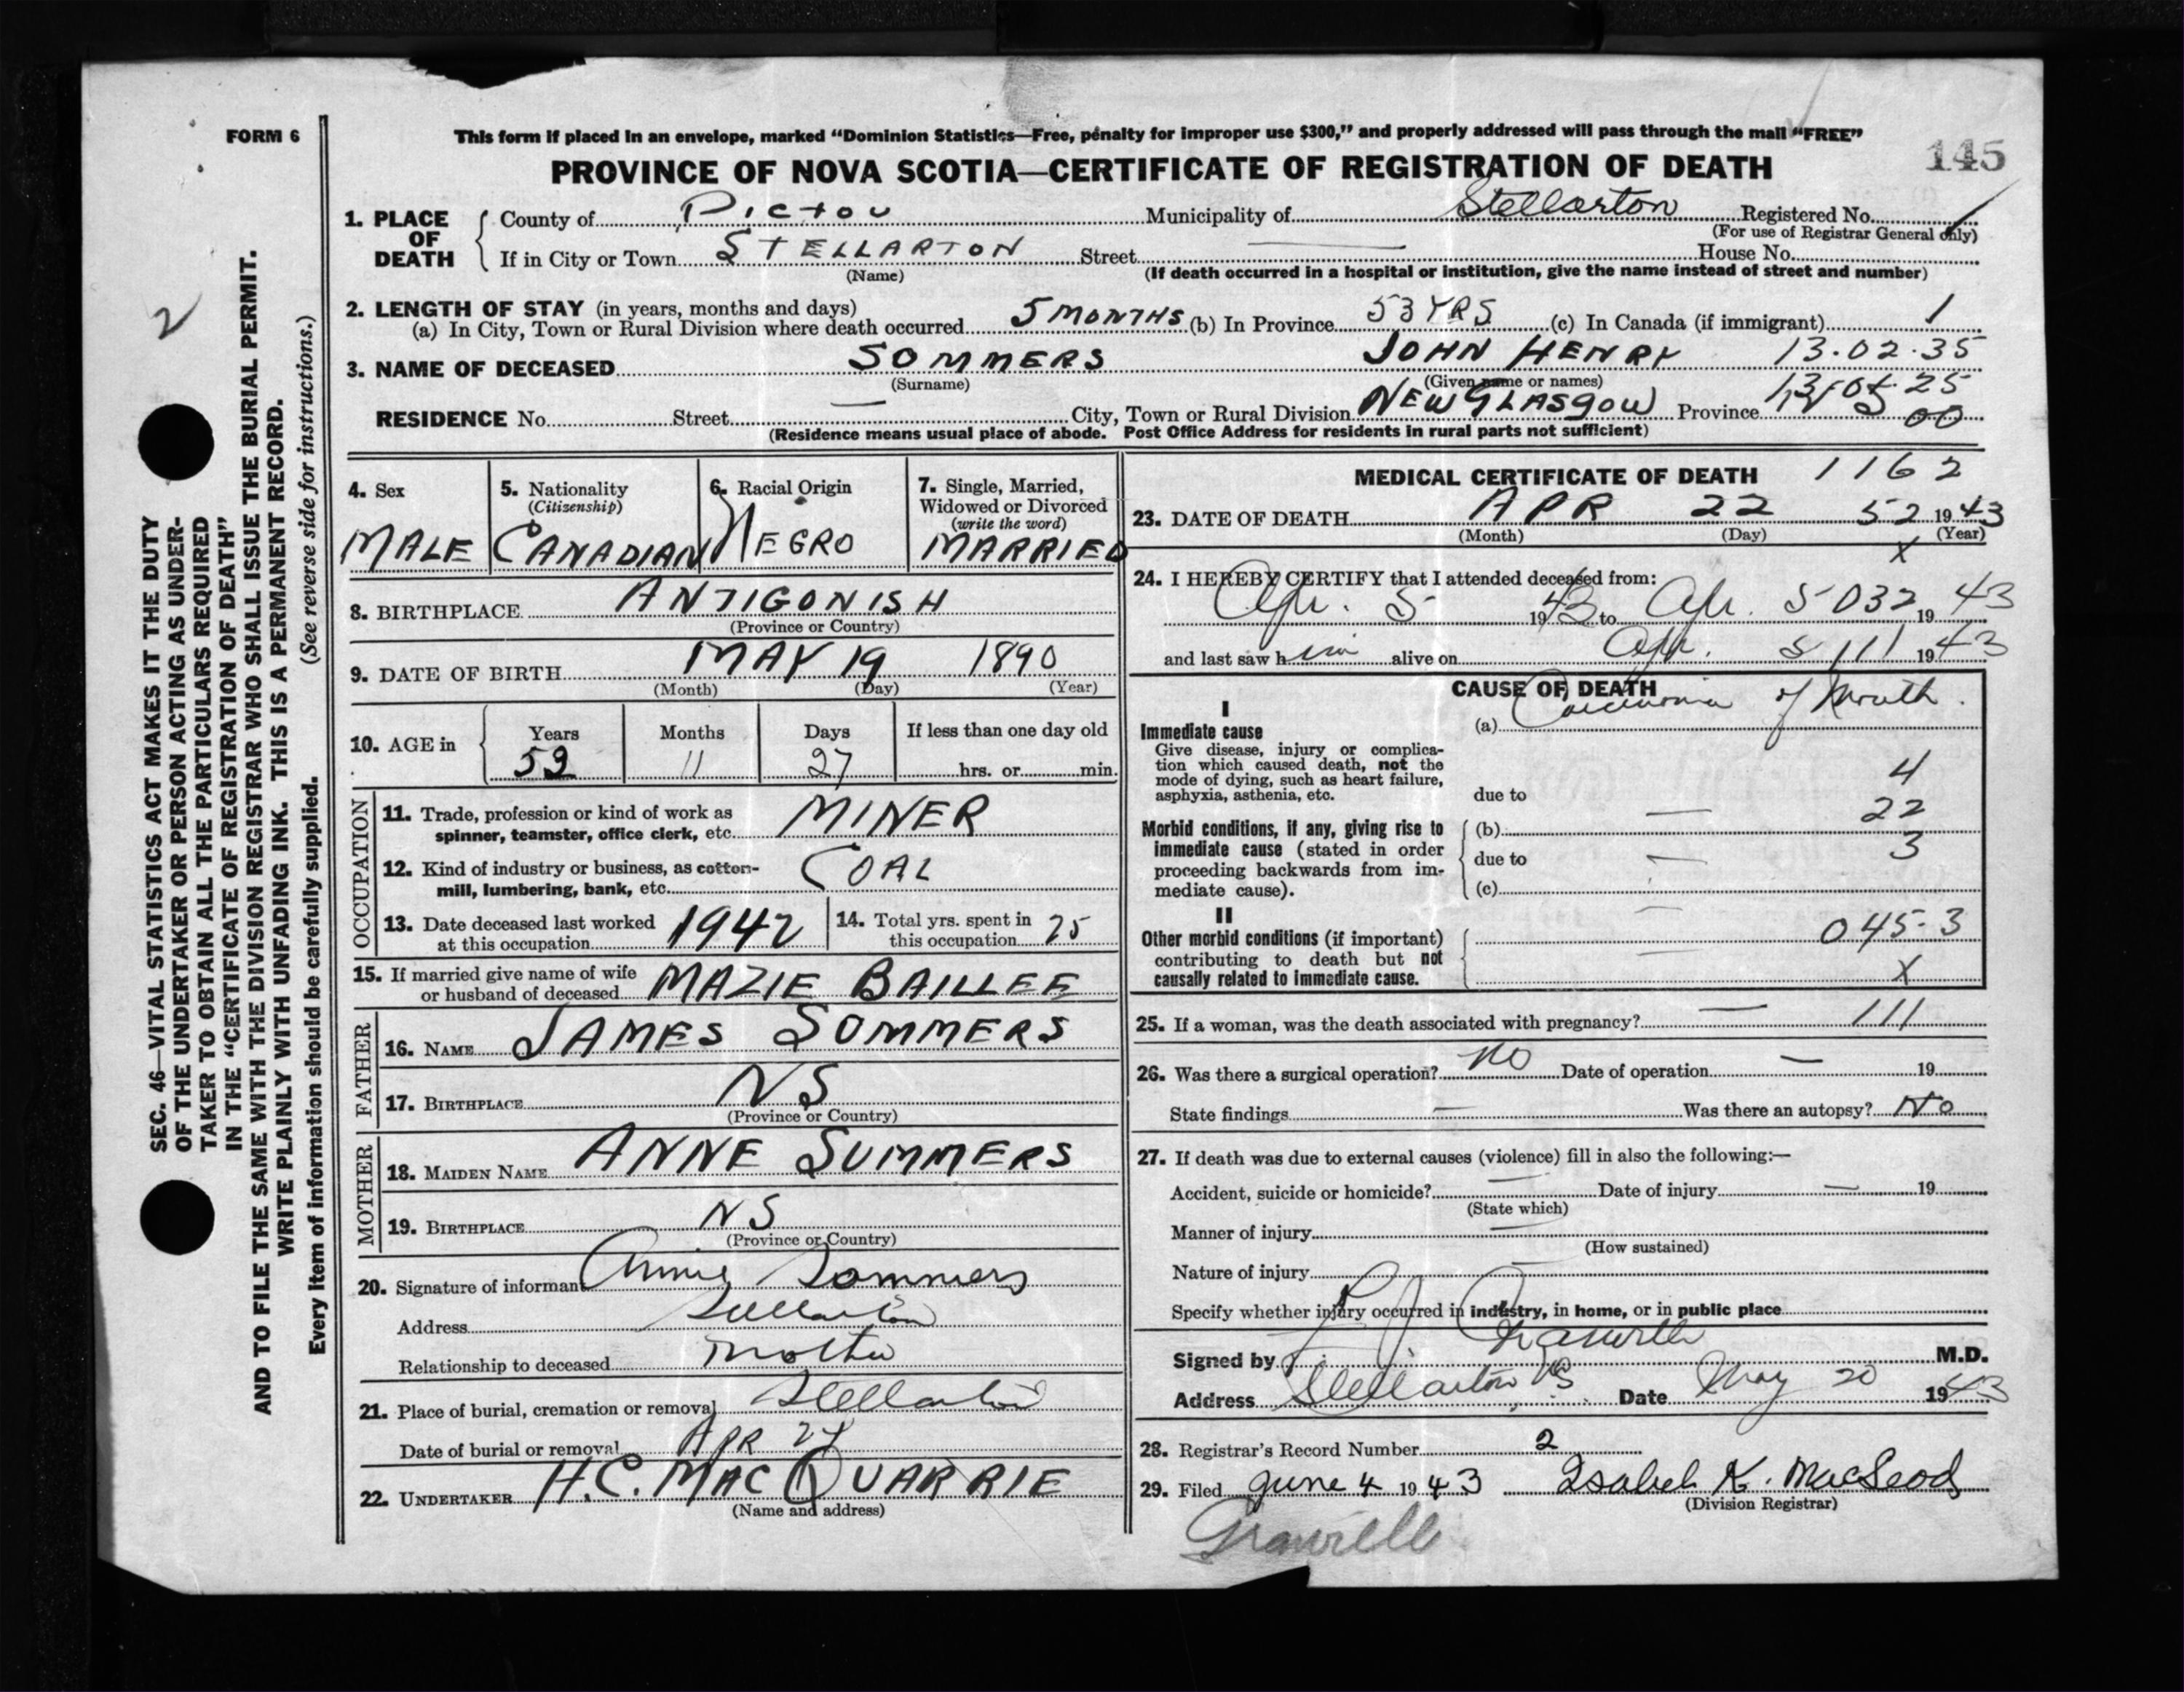 FORM 6
This form if placed in an envelope, marked “Dominion Statistics—Free, penalty for improper use $300,” and properly addressed will pass through the mail “FREE”
145
PROVINCE OF NOVA SCOTIA—CERTIFICATE OF REGISTRATION OF DEATH
1. PLACE OF DEATH
County of Pictou Municipality of Stellarton Registered No.
(For use of Registrar General only)
If in City or Town STELLARTON Street — House No.
(Name) (If death occurred in a hospital or institution, give the name instead of street and number)
2. LENGTH OF STAY (in years, months and days)
(a) In City, Town or Rural Division where death occurred 5 MONTHS (b) In Province 53 YRS (c) In Canada (if immigrant) /
3. NAME OF DECEASED SOMMERS JOHN HENRY 13.02.35
(Surname) (Given name or names)
RESIDENCE No. Street — City, Town or Rural Division NEW GLASGOW Province NS
25
00
(Residence means usual place of abode. Post Office Address for residents in rural parts not sufficient)
4. Sex
MALE
5. Nationality
(Citizenship)
CANADIAN
6. Racial Origin
NEGRO
7. Single, Married,
Widowed or Divorced
(write the word)
MARRIED
8. BIRTHPLACE ANTIGONISH
(Province or Country)
9. DATE OF BIRTH MAY 19 1890
(Month) (Day) (Year)
10. AGE in
Years Months Days If less than one day old
11 27 hrs. or min.
OCCUPATION
11. Trade, profession or kind of work as
spinner, teamster, office clerk, etc. MINER
12. Kind of industry or business, as cotton-
mill, lumbering, bank, etc. COAL
13. Date deceased last worked
at this occupation 1942
14. Total yrs. spent in
this occupation 25
15. If married give name of wife
or husband of deceased MAZIE BAILLEE
FATHER
16. NAME JAMES SOMMERS
17. BIRTHPLACE NS
(Province or Country)
MOTHER
18. MAIDEN NAME ANNE SUMMERS
19. BIRTHPLACE NS
(Province or Country)
20. Signature of informant Annie Sommers
Address Stellarton
Relationship to deceased Mother
21. Place of burial, cremation or removal Stellarton
Date of burial or removal APR 24
22. UNDERTAKER H.C. MACQUARRIE
(Name and address)
MEDICAL CERTIFICATE OF DEATH 1162
23. DATE OF DEATH APR 22 52 1943
(Month) (Day) (Year)
X
24. I HEREBY CERTIFY that I attended deceased from:
Apr. 5 1943 to Apr. 5 032 1943
and last saw him alive on Apr. 5 111 1943
CAUSE OF DEATH
I
Immediate cause
Give disease, injury or complica-
tion which caused death, not the
mode of dying, such as heart failure,
asphyxia, asthenia, etc.
(a) Carcinoma of Mouth.
4
due to
22
Morbid conditions, if any, giving rise to
immediate cause (stated in order
proceeding backwards from im-
mediate cause).
(b) —
3
due to —
(c)
II
Other morbid conditions (if important)
contributing to death but not
causally related to immediate cause.
045-3
X
25. If a woman, was the death associated with pregnancy? — 111
26. Was there a surgical operation? No Date of operation — 19
State findings — Was there an autopsy? No
27. If death was due to external causes (violence) fill in also the following:—
Accident, suicide or homicide? — Date of injury — 19
(State which)
Manner of injury —
(How sustained)
Nature of injury —
Specify whether injury occurred in industry, in home, or in public place
Signed by Granville M.D.
Address Stellarton NS Date May 20 1943
28. Registrar's Record Number 2
29. Filed June 4 1943 Isabel K. MacLeod
(Division Registrar)
Granville
2
SEC. 46—VITAL STATISTICS ACT MAKES IT THE DUTY
OF THE UNDERTAKER OR PERSON ACTING AS UNDER-
TAKER TO OBTAIN ALL THE PARTICULARS REQUIRED
IN THE “CERTIFICATE OF REGISTRATION OF DEATH”
AND TO FILE THE SAME WITH THE DIVISION REGISTRAR WHO SHALL ISSUE THE BURIAL PERMIT.
WRITE PLAINLY WITH UNFADING INK. THIS IS A PERMANENT RECORD.
Every item of information should be carefully supplied. (See reverse side for instructions.)